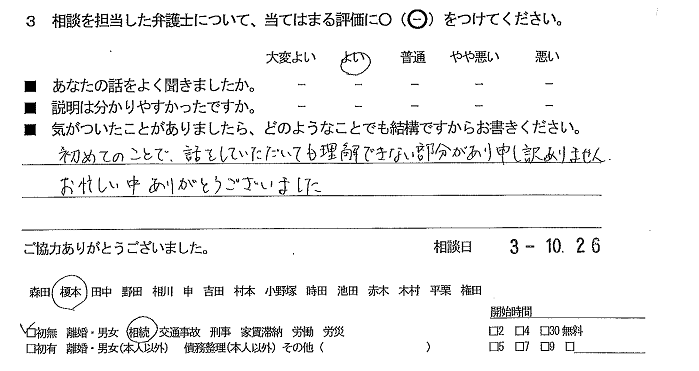 3 相談を担当した弁護士について、当てはまる評価に○（⊖）をつけてください。
大変よい よい 普通 やや悪い 悪い
■ あなたの話をよく聞きましたか。 － － － － －
■ 説明は分かりやすかったですか。 － － － － －
■ 気がついたことがありましたら、どのようなことでも結構ですからお書きください。
初めてのことで、話をしていただいても理解できない部分があり申し訳ありません.
お忙しい中ありがとうございました
ご協力ありがとうございました。 相談日 3－10.26
森田 榎本 田中 野田 相川 申 吉田 村本 小野塚 時田 池田 赤木 木村 平栗 権田
開始時間
☐初無 離婚・男女 相続 交通事故 刑事 家賃滞納 労働 労災 ☐2 ☐4 ☐30無料
☐初有 離婚・男女(本人以外) 債務整理(本人以外) その他 ( ) ☐5 ☐7 ☐9 ☐